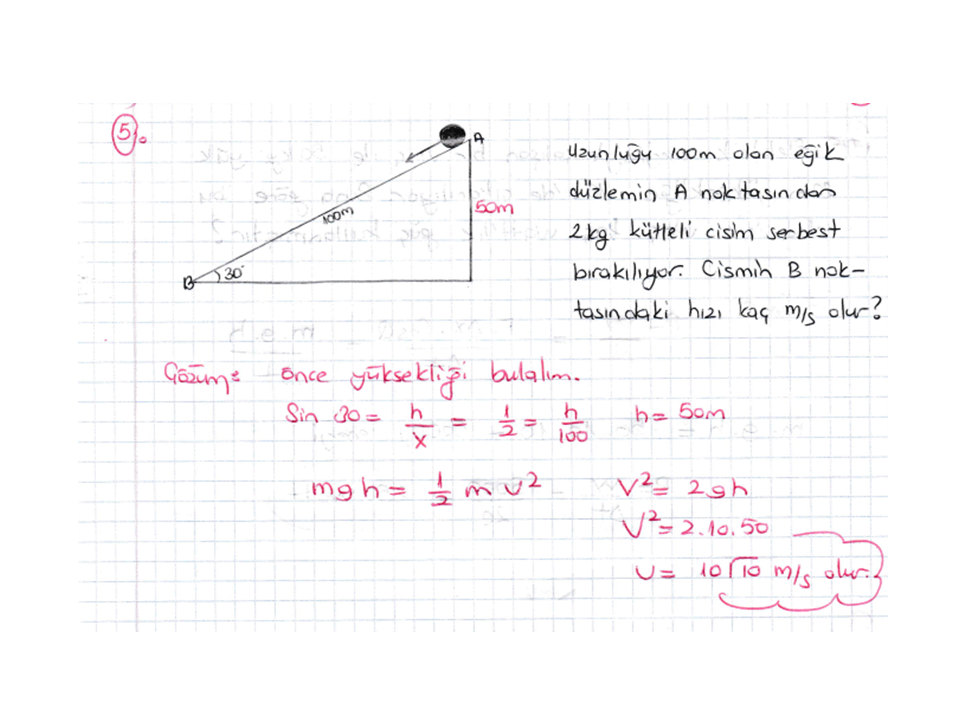 5.
A
100m
50m
B
30°
Uzunluğu 100m olan eğik
düzlemin A noktasından
2kg kütleli cisim serbest
bırakılıyor. Cismin B nok-
tasındaki hızı kaç m/s olur?
Çözüm: önce yüksekliği bulalım.
Sin 30 = h/x = 1/2 = h/100 h = 50m
mgh = 1/2 m v² V² = 2gh
V² = 2.10.50
v = 10√10 m/s olur.